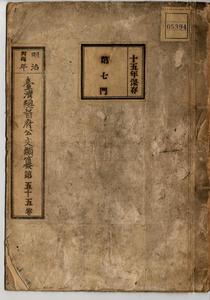 05394
十五年保存
第七門
明治
年
臺灣總督府公文類纂第五十五卷